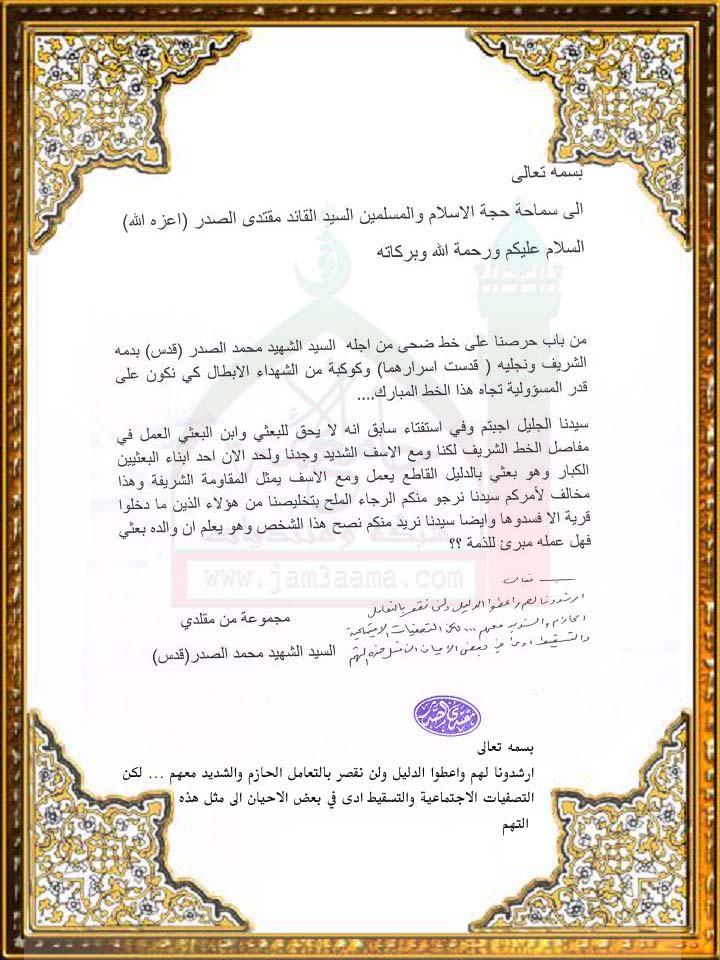 بسمه تعالى
الى سماحة حجة الاسلام والمسلمين السيد القائد مقتدى الصدر (اعزه الله)
السلام عليكم ورحمة الله وبركاته
من باب حرصنا على خط ضحى من اجله السيد الشهيد محمد الصدر (قدس) بدمه
الشريف ونجليه ( قدست اسرارهما) وكوكبة من الشهداء الابطال كي نكون على
قدر المسؤولية تجاه هذا الخط المبارك....
سيدنا الجليل اجبتم وفي استفتاء سابق انه لا يحق للبعثي وابن البعثي العمل في
مفاصل الخط الشريف لكنا ومع الاسف الشديد وجدنا ولحد الان احد ابناء البعثيين
الكبار وهو بعثي بالدليل القاطع يعمل ومع الاسف يمثل المقاومة الشريفة وهذا
مخالف لأمركم سيدنا نرجو منكم الرجاء الملح بتخليصنا من هؤلاء الذين ما دخلوا
قرية الا فسدوها وايضا سيدنا نريد منكم نصح هذا الشخص وهو يعلم ان والده بعثي
فهل عمله مبرئ للذمة ؟؟
شبكة ومنتديات
www.jam3aama.com
بسمه تعالى
ارشدونا لهم واعطوا الدليل ولن نقصر بالتعامل
الحازم والشديد معهم ... لكن التصفيات الاجتماعية
والتسقيط ادى في بعض الاحيان الى مثل هذه التهم
مجموعة من مقلدي
السيد الشهيد محمد الصدر(قدس)
مقتدى الصدر
بسمه تعالى
ارشدونا لهم واعطوا الدليل ولن نقصر بالتعامل الحازم والشديد معهم ... لكن
التصفيات الاجتماعية والتسقيط ادى في بعض الاحيان الى مثل هذه
التهم